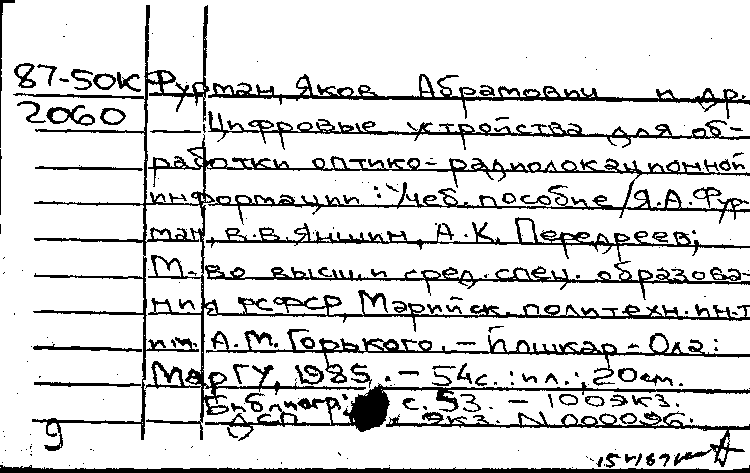 87-50К Фурман, Яков Абрамович и др.
2060 Цифровые устройства для об-
работки оптико-радиолокационной
информации : Учеб. пособие / Я.А. Фур-
ман, В.В. Яншин, А.К. Передреев;
М-во высш. и сред. спец. образова-
ния РСФСР, Марийск. политехн. ин-т
им. А.М. Горького. – Йошкар-Ола:
МарГУ, 1985. – 54с. : ил.; 20см.
Библиогр.: с. 53. – 100экз.
ДСП экз. N 000096.
9